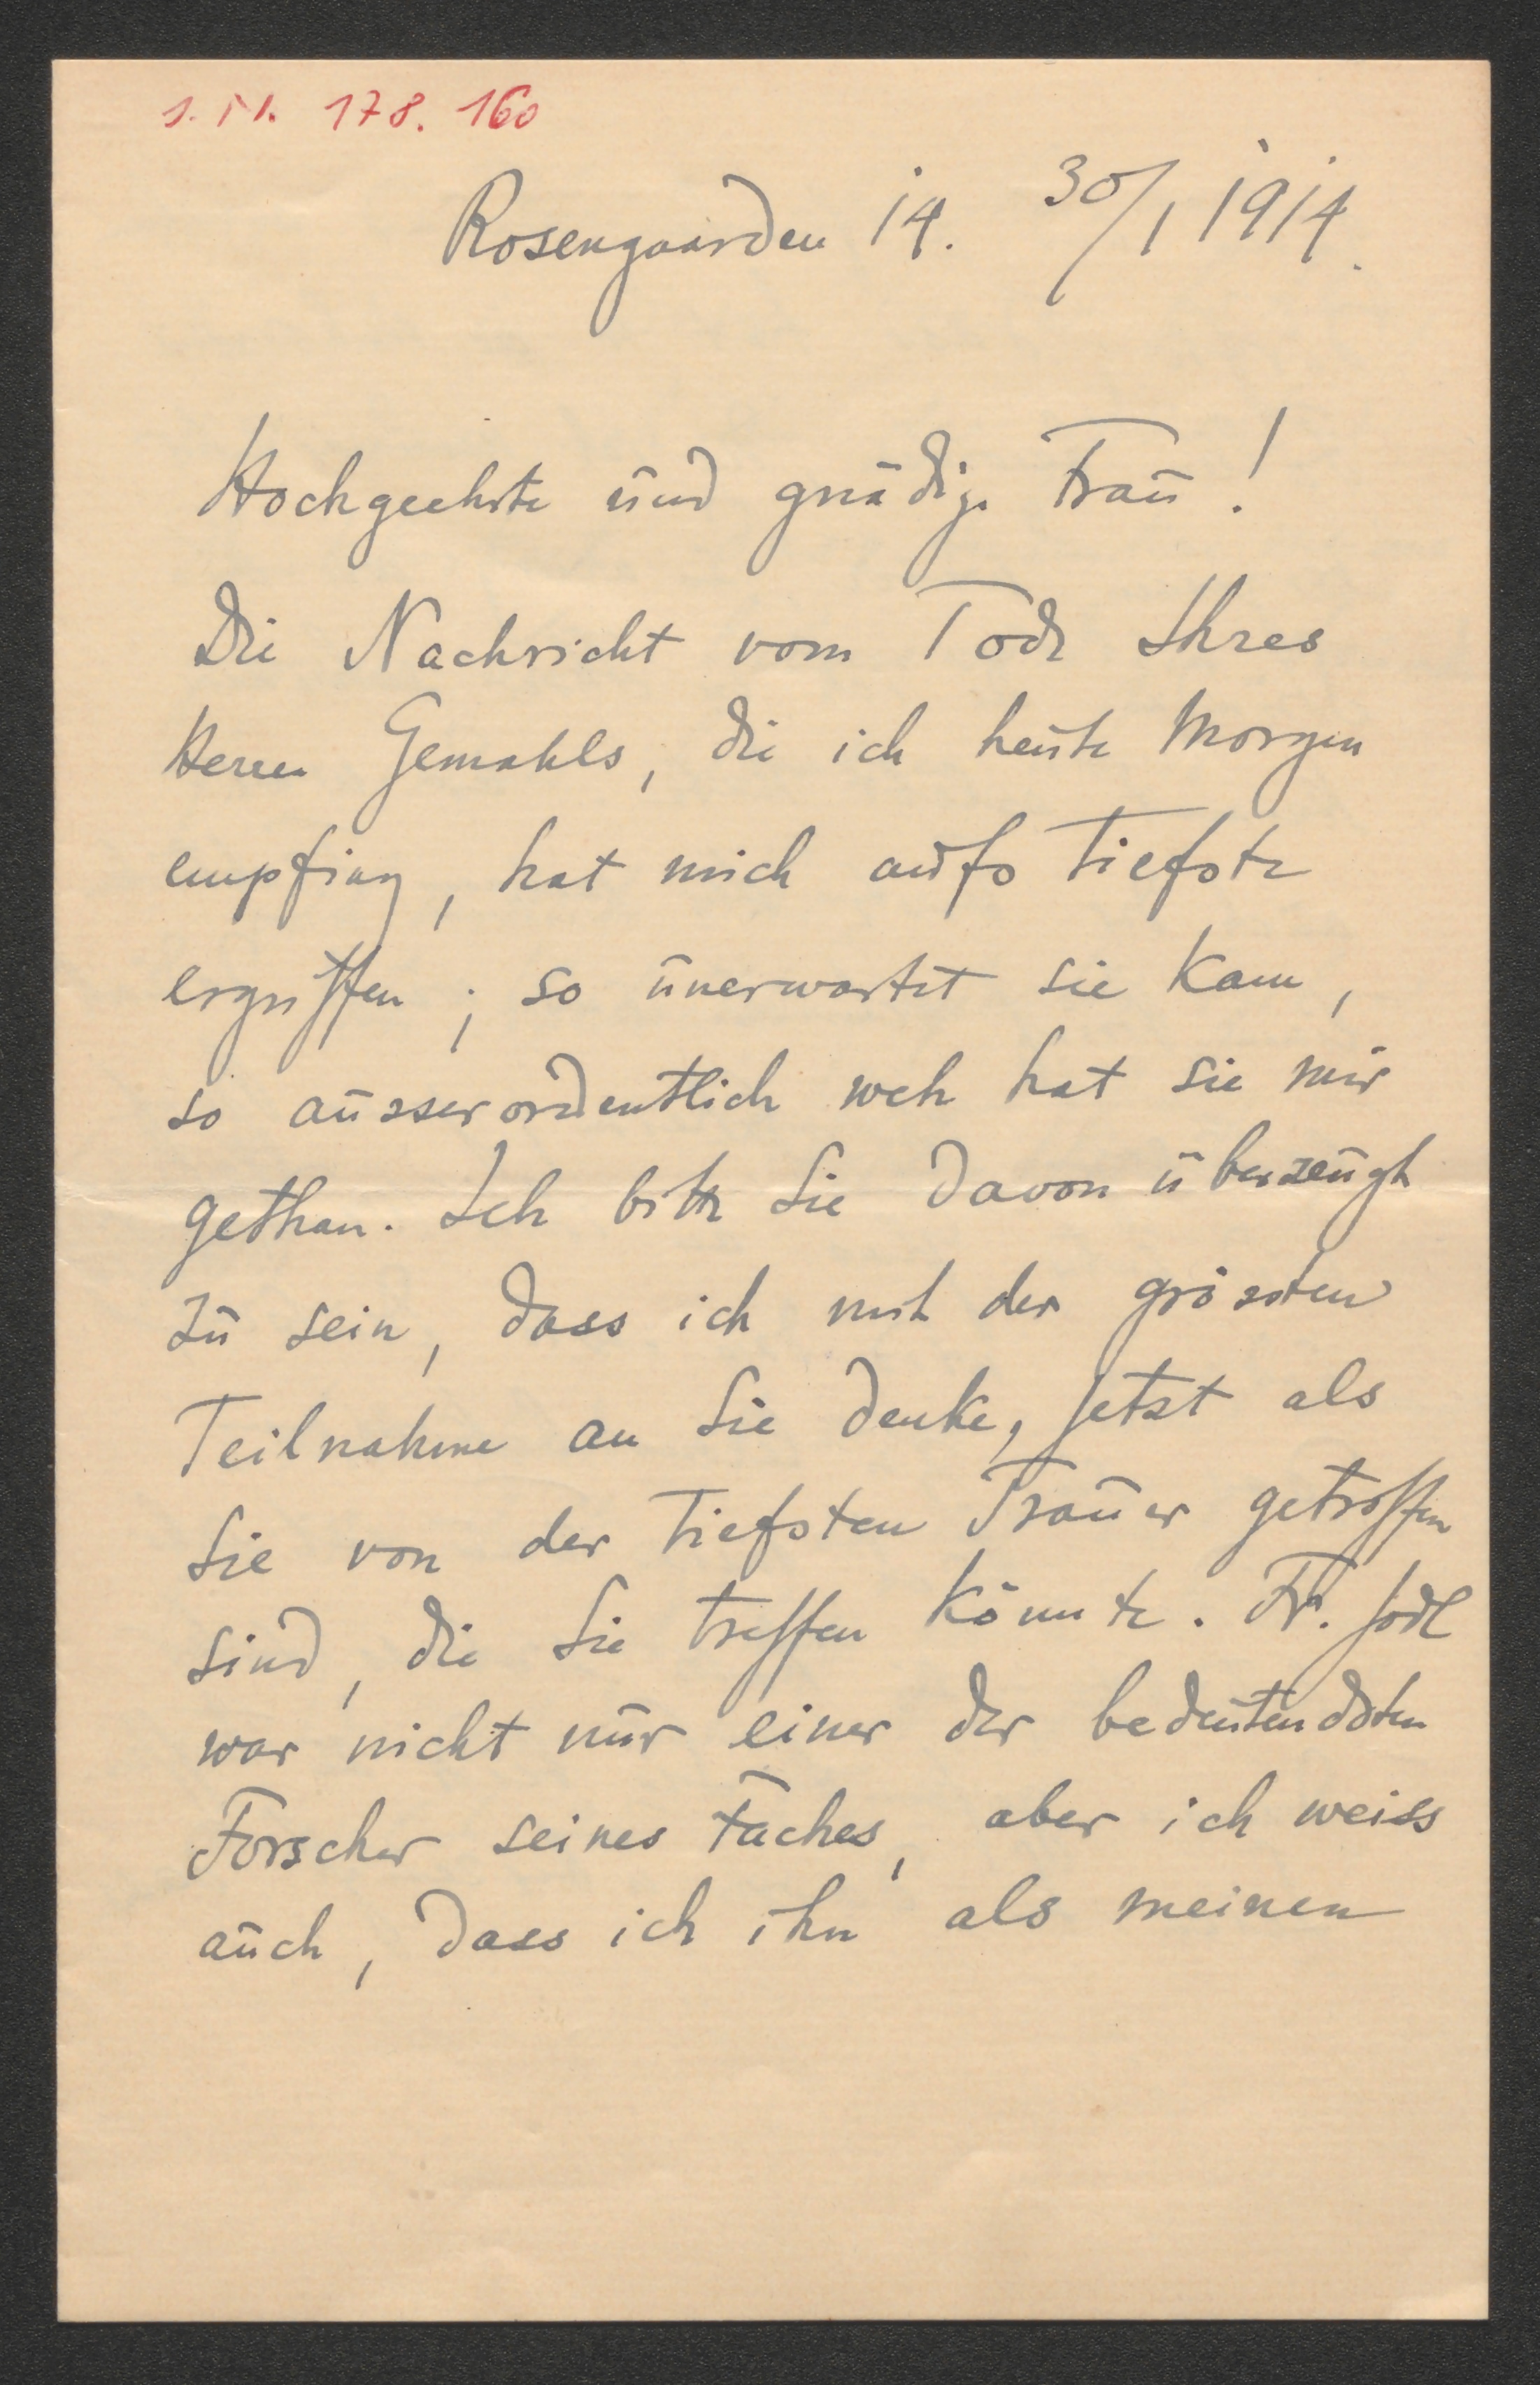 178. 160
Rosengaarden 14. 30/1 1914.
Hochgeehrte und gnädige Frau!
Die Nachricht vom Tode Ihres
Herrn Gemahls, die ich heute Morgen
empfing, hat mich aufs tiefste
ergriffen; so unerwartet sie kam,
so ausserordentlich weh hat sie mir
gethan. Ich bitte Sie davon überzeugt
zu sein, dass ich mit der grössten
Teilnahme an Sie denke, jetzt als
Sie von der tiefsten Trauer getroffen
sind, die Sie treffen könnte. Fr. Jodl
war nicht nur einer der bedeutendsten
Forscher seines Faches, aber ich weiss
auch, dass ich ihn als meinen